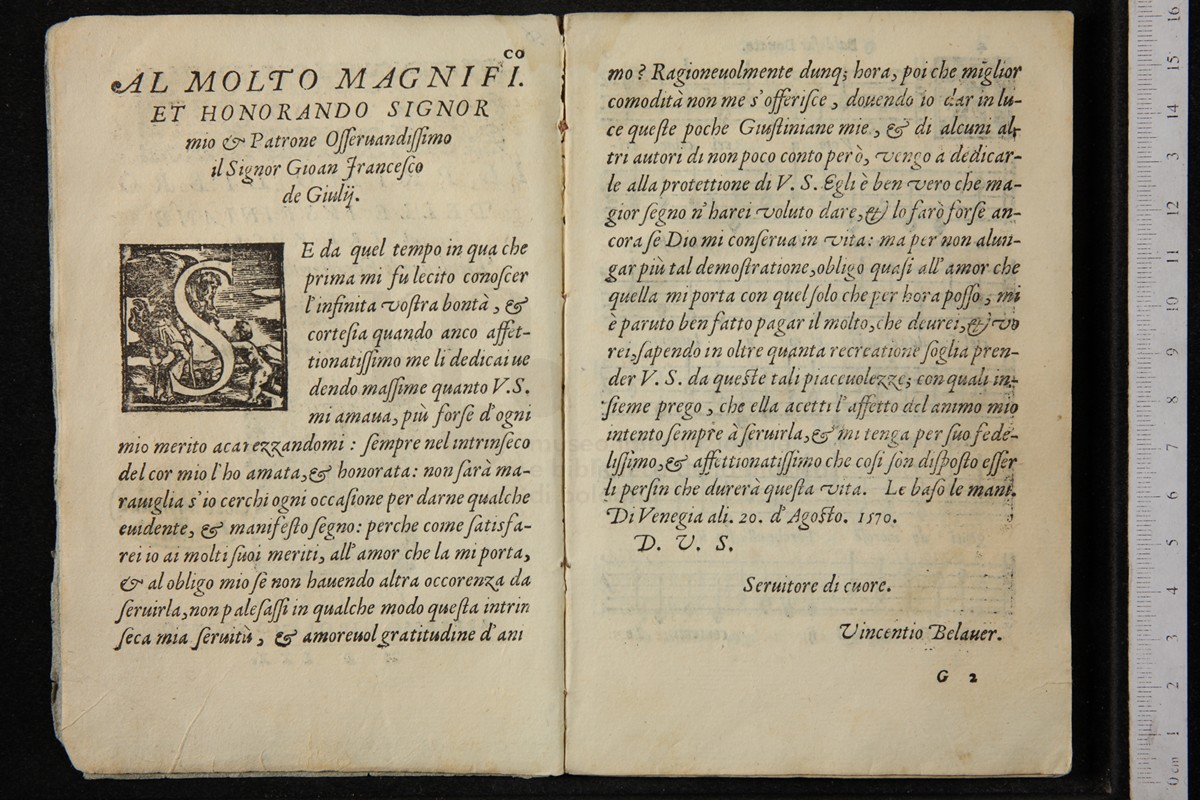 AL MOLTO MAGNIFI.
CO
ET HONORANDO SIGNOR
mio & Patrone Osseruandissimo
il Signor Gioan Francesco
de Giulij.
SE da quel tempo in qua che
prima mi fu lecito conoscer
l'infinita vostra bontà, &
cortesia quando anco affet-
tionatissimo me li dedicai ue
dendo massime quanto V.S.
mi amaua, più forse d'ogni
mio merito acarezzandomi: sempre nel intrinseco
del cor mio l'ho amata, & honorata: non sarà ma-
rauiglia s'io cerchi ogni occasione per darne qualche
euidente, & manifesto segno: perche come satisfa-
rei io ai molti suoi meriti, all'amor che la mi porta,
& al obligo mio se non hauendo altra occorenza da
seruirla, non palesassi in qualche modo questa intrin
seca mia seruitù, & amoreuol gratitudine d'ani
mo? Ragioneuolmente dunq; hora, poi che miglior
comodità non me s'offerisce, douendo io dar in lu-
ce queste poche Giustiniane mie, & di alcuni al-
tri autori di non poco conto però, vengo à dedicar-
le alla protettione di V. S. Egli è ben vero che ma-
gior segno n'harei voluto dare, & lo farò forse an-
cora se Dio mi conserua in vita: ma per non alun-
gar più tal demostratione, obligo quasi all'amor che
quella mi porta con quel solo che per hora posso, mi
è paruto ben fatto pagar il molto, che deurei, & vo
rei, sapendo in oltre quanta recreatione soglia pren-
der V. S. da queste tali piaceuolezze; con quali in-
sieme prego, che ella acetti l'affetto del animo mio
intento sempre à seruirla, & mi tenga per suo fede-
lissimo, & affettionatissimo che cosi son disposto esser
li persin che durerà questa vita. Le baso le mani.
Di Venegia ali. 20. d'Agosto. 1570.
D. V. S.
Seruitore di cuore.
Vincentio Belauer.
G 2